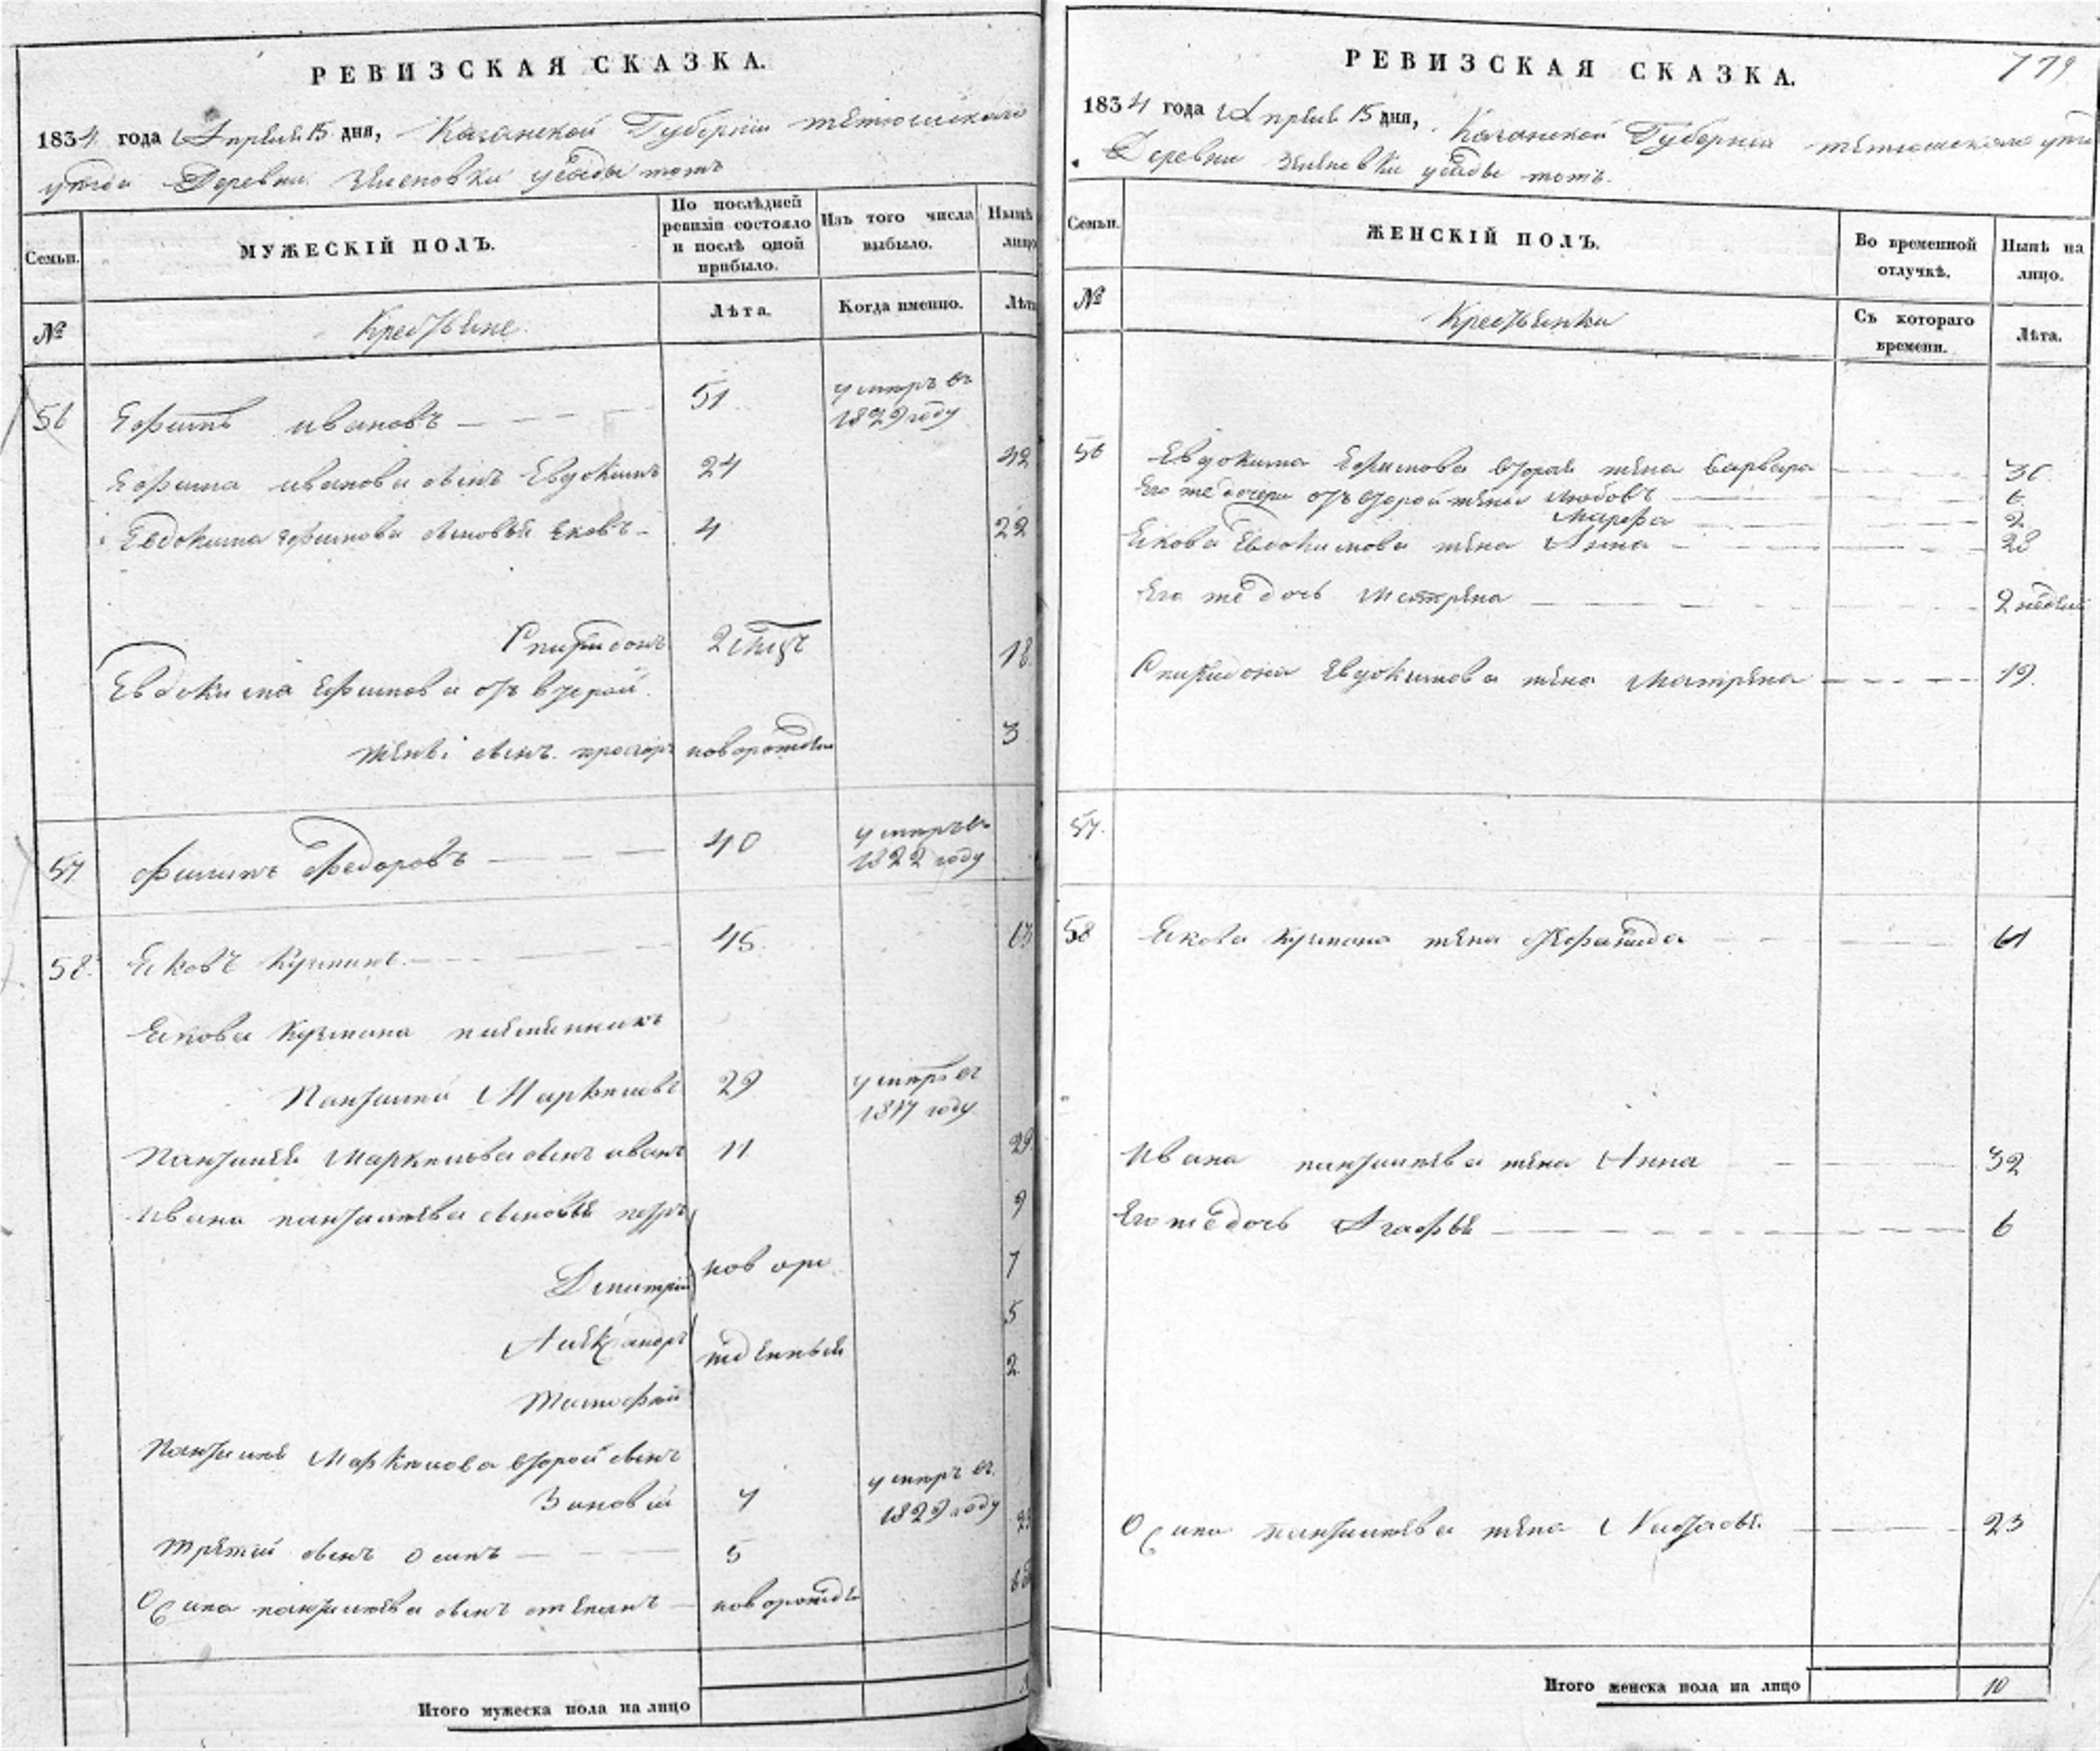 РЕВИЗСКАЯ СКАЗКА.
1834 года Апреля 15 дня, Казанской Губернии тетюшскаго
уезда Деревни усады тожъ
Семьи.
МУЖЕСКІЙ ПОЛЪ.
По послѣдней ревизіи состояло и послѣ оной прибыло.
Изъ того числа выбыло.
Нынѣ лицо
№
Крестьяне
Лѣта.
Когда именно.
Лѣта
56 Ефимъ ивановъ 51 умиръ въ 1829 году
Ефима иванова сынъ Евдокимъ 24 42
Евдокима Ефимова сыновья Яковъ 4 22
Спиридонъ 2 18
Евдокима Ефимова отъ второй
жены сынъ новорожден 3
57 Филипъ Федоровъ 40 умиръ въ 1822 году
58 Яковъ Кузминъ 45 63
Якова Кузмина племянникъ
Пантилей Маркеловъ 29 умиръ въ 1817 году
Пантилея Маркелова сынъ иванъ 11 29
Ивана пантилеева сыновья петръ 9
Дмитрій новоро 7
Александръ жденныя 5
Тимофей 2
Пантилея Маркелова второй сынъ
Зиновій 7 умиръ въ 1829 году
третий сынъ осипъ 5
Осипа пантилеева сынъ степанъ новорожде
Итого мужеска пола на лицо
РЕВИЗСКАЯ СКАЗКА.
779
1834 года Апреля 15 дня, Казанской Губернии тетюшскаго уезда
Деревни усады тожъ.
Семьи.
ЖЕНСКІЙ ПОЛЪ.
Во временной отлучкѣ.
Нынѣ на лицо.
№
Крестьянки
Съ котораго времени.
Лѣта.
56 Евдокима Ефимова вторая жена варвара
Его же дочери отъ второй жены любовь 6
Марфа 2
Якова Евдокимова жена Анна
Его же дочь Матрена 2 недели
Спиридона Евдокимова жена Матрена 19
57.
58 Якова Кузмина жена 61
Ивана пантилеева жена Анна 32
Его же дочь Агафья 6
Осипа пантилеева жена Наталья 23
Итого женска пола на лицо 10